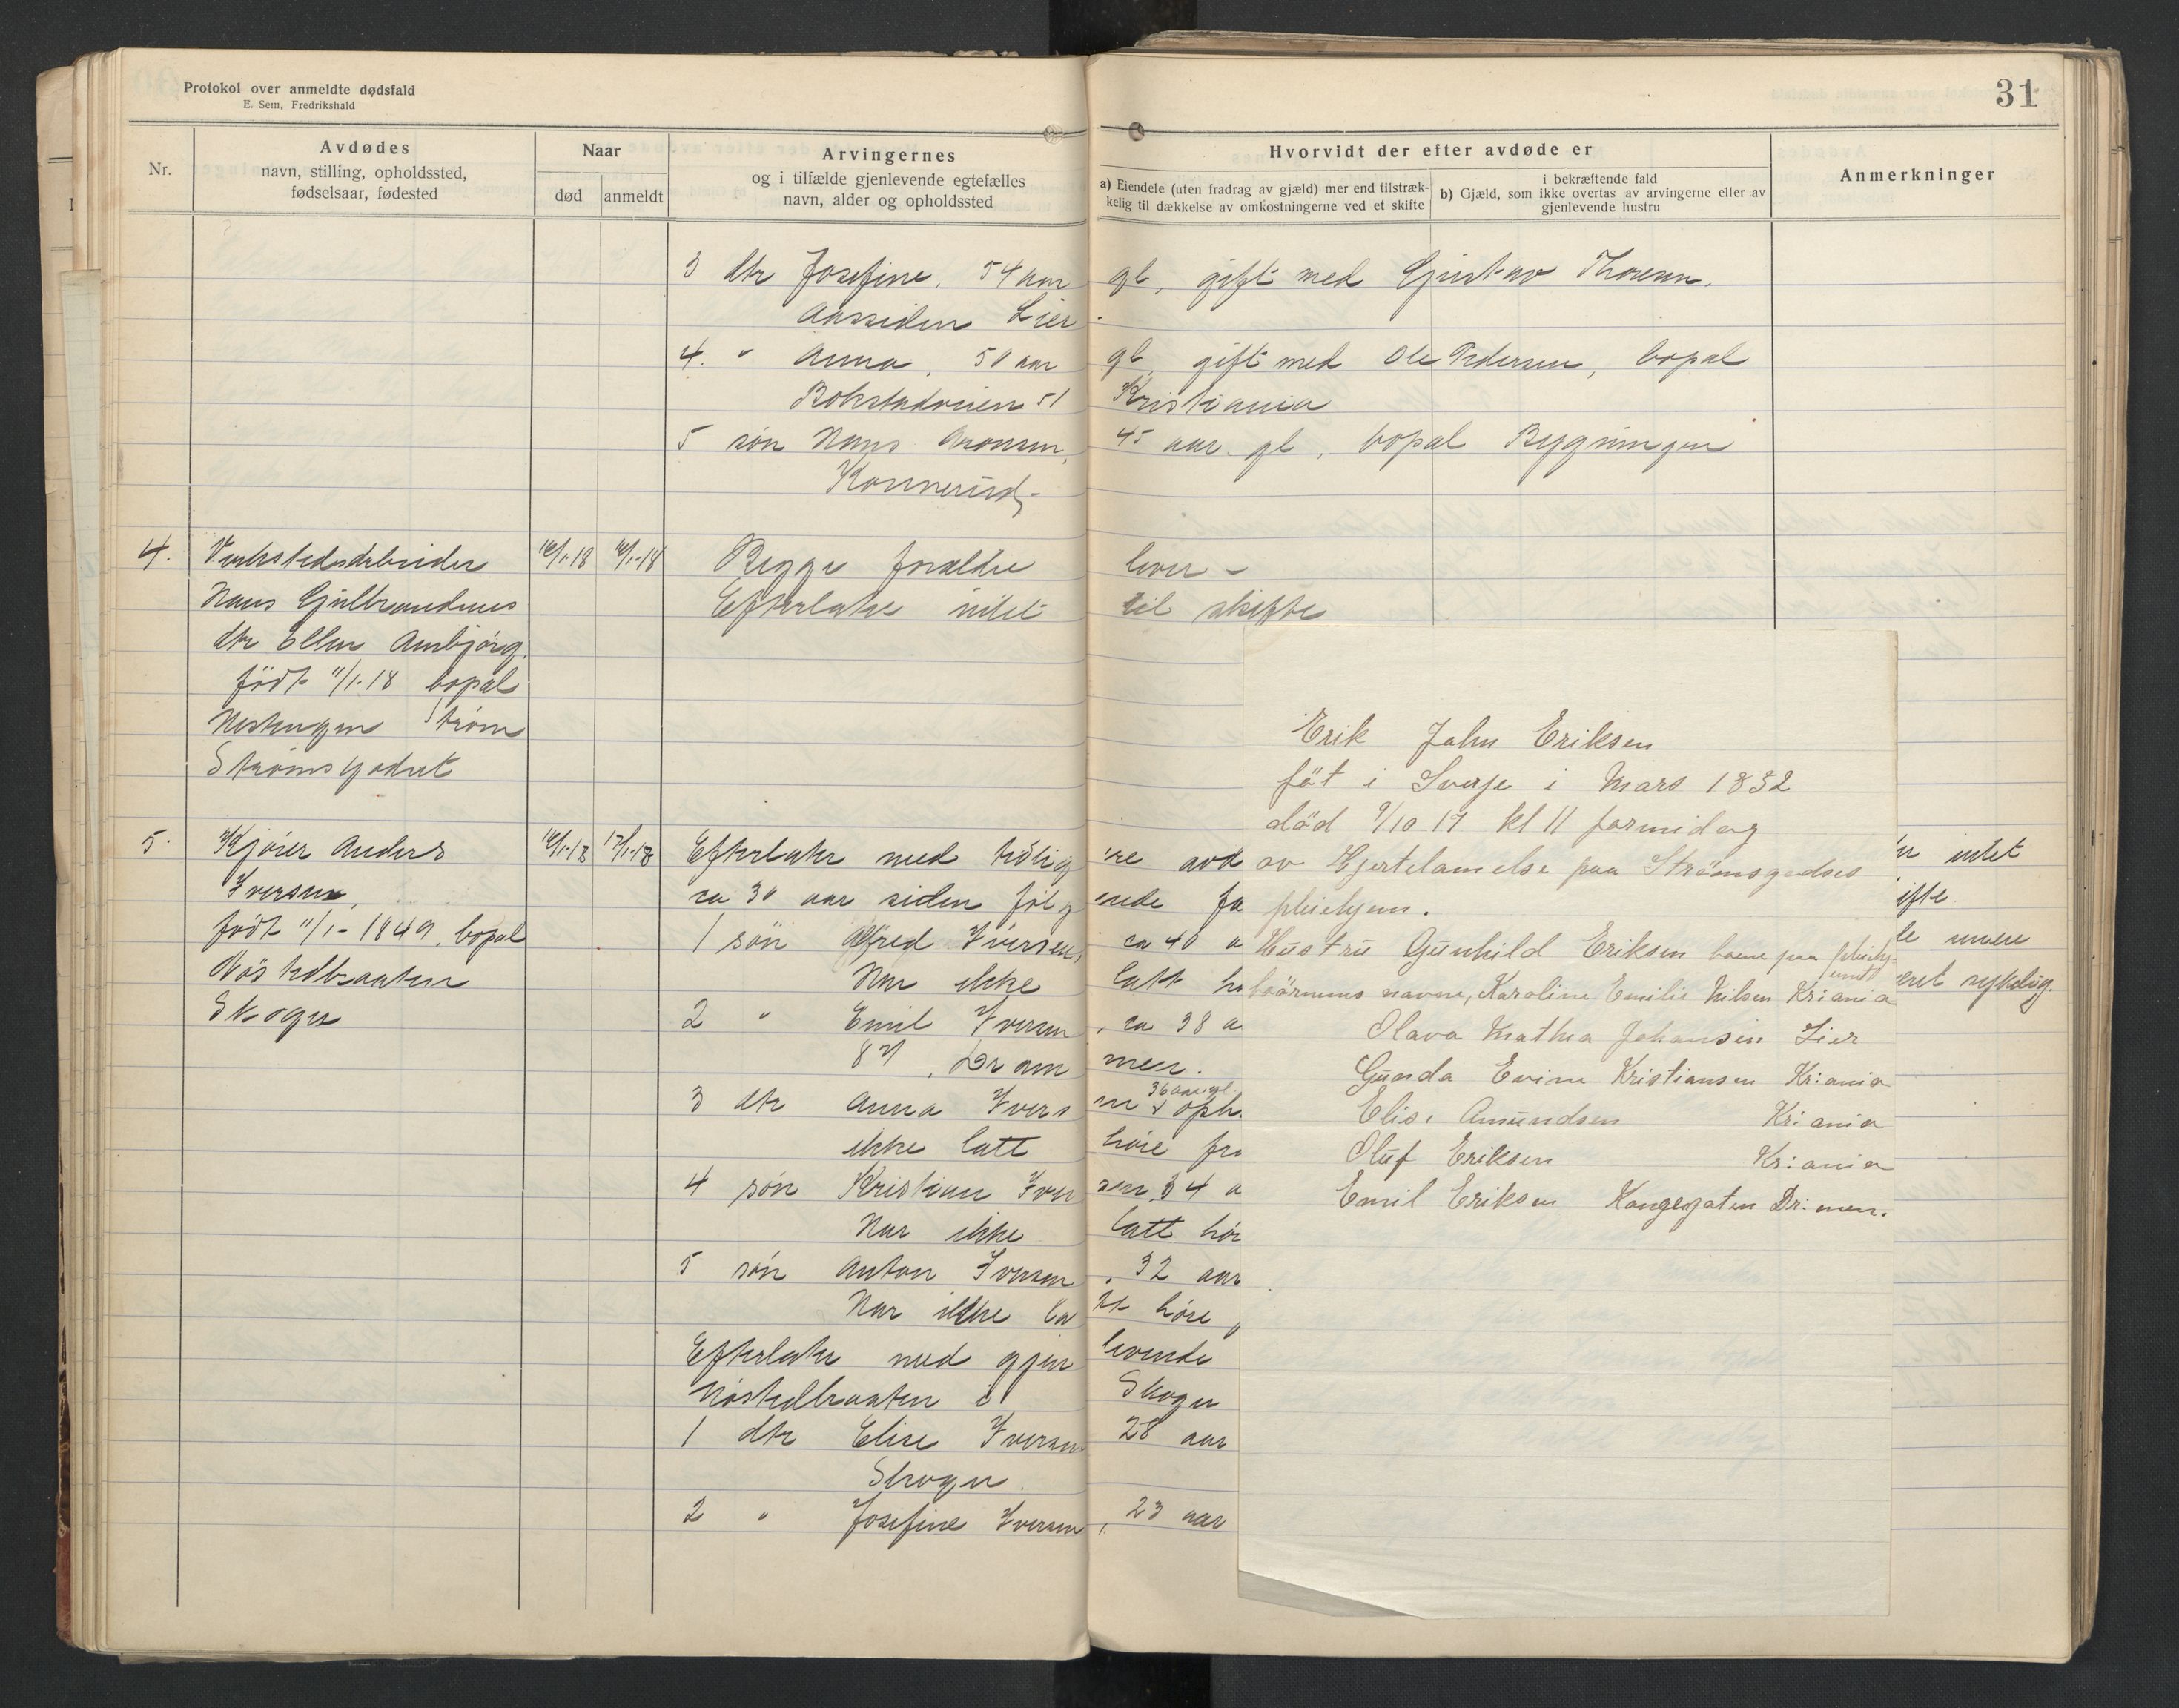 Protokol over anmeldte dødsfald
E. Sem, Fredrikshald
31
Nr.
Avdødes
navn, stilling, opholdssted,
fødselsaar, fødested
Naar
død
anmeldt
Arvingernes
og i tilfælde gjenlevende egtefælles
navn, alder og opholdssted
Hvorvidt der efter avdøde er
a) Eiendele (uten fradrag av gjæld) mer end tilstræk-
kelig til dækkelse av omkostningerne ved et skifte
i bekræftende fald
b) Gjæld, som ikke overtas av arvingerne eller av
gjenlevende hustru
Anmerkninger
3 dtr Josefine, 54 aar gl, gift med Gustav Thoresen.
Aassiden Lier.
4. " Anna, 50 aar gl, gift med Ole Pedersen, bopal
51 Kristiania
5 søn Hans Aronsen, 45 aar gl, bopal Bygningen
Konnerud
4.
Verkstedsarbeider
Hans Gulbrandsens
dtr Ellen Annbjørg,
født 11/1-18 bopal
Strøm
Strømsgodset
16/1-18
Begge forældre lever -
Efterlater intet til skifte
5.
Kjører Anders
Iversen,
født 11/1-1849, bopal
Nøstedbraaten
Skoger
16/1-18
17/1-18
Efterlater med tidligere avd
ca 30 aar siden følgende fa
1 søn Alfred Iversen, ca 40 a
Har ikke latt hø
2 " Emil Iversen, ca 38 a
87, Drammen.
3 dtr Anna Iversen 36 aar gl. oph.
ikke latt høre fra
4 søn Kristian Iversen, 34 a
Har ikke latt hør
5 søn Anton Iversen, 32 aar
Har ikke latt høre
Efterlater med gjenlevende
Nøstedbraaten i Skoger
1 dtr Elise Iversen 28 aar
Skoger.
2 " Josefine Iversen, 23 aar
er intet
ifte
le
eret sykelig.
Erik John Eriksen
föt i Sverje i Mars 1832
död 9/10 17 kl 11 formidag
av Hjertelamelse paa Strømsgodses
pleiehjem.
Hustru Gunhild Eriksen boene paa pleiehjemmet
börnenes navne, Karoline Emilie Nilsen Kr:ania
Olava Mathea Johansen Lier
Gunda Evine Kristiansen Kr:ania
Elise Amundsen Kr:ania
Oluf Eriksen Kr:ania
Emil Eriksen Kongegaten Dr:men.